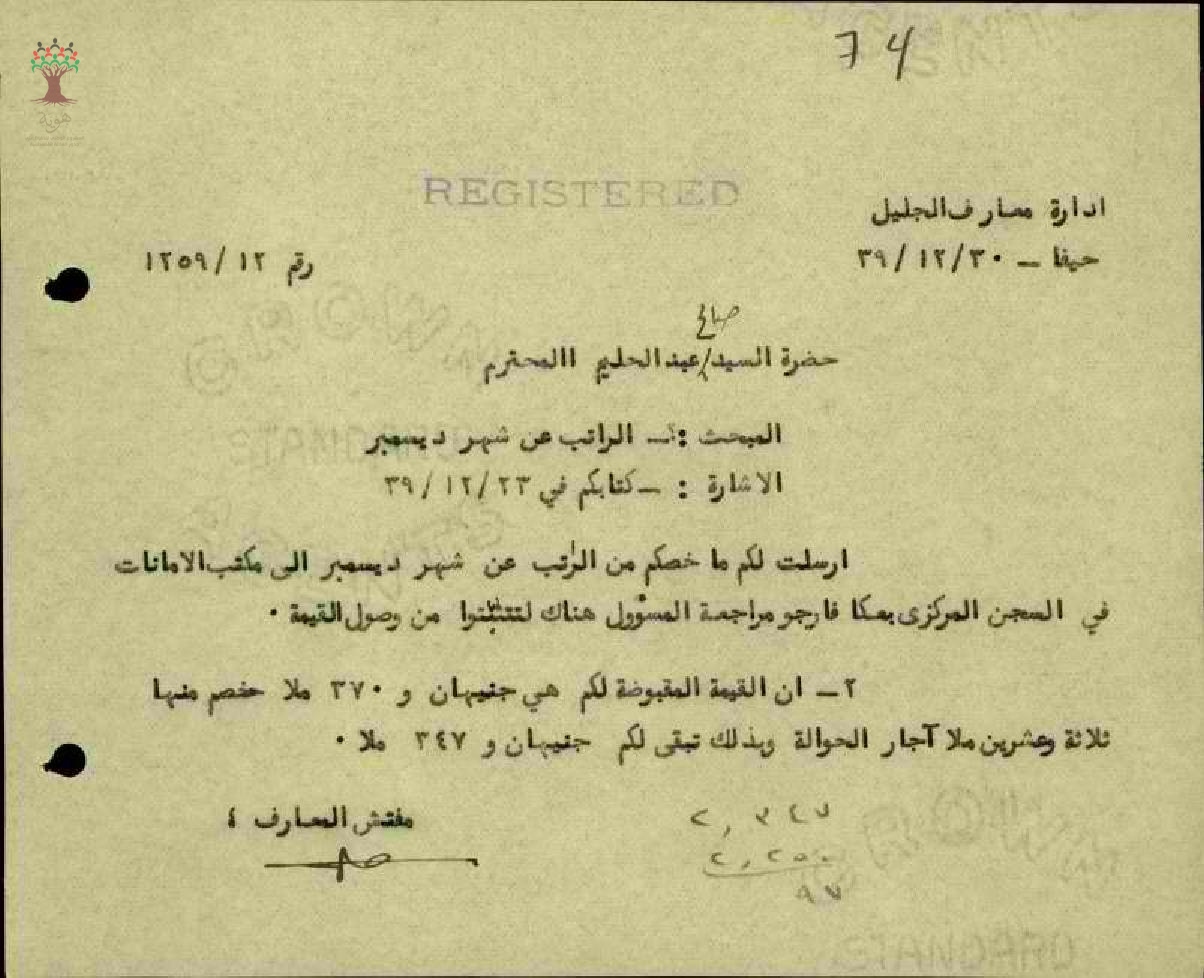 74
هوية
REGISTERED
ادارة معارف الجليل
حيفا — ٣٩/١٢/٣٠
رقم ١٢٥٩/١٢
صالح
حضرة السيد/عبد الحليم المحترم
المبحث :ـ الراتب عن شهر ديسمبر
الاشارة : ـ كتابكم في ٣٩/١٢/٢٣
ارسلت لكم ما خصكم من الراتب عن شهر ديسمبر الى مكتب الامانات
في السجن المركزى بعكا فارجو مراجعة المسؤول هناك لتتثبتوا من وصول القيمة ٠
٢ـ ان القيمة المقبوضة لكم هي جنيهان و ٣٧٠ ملا خصم منها
ثلاثة وعشرين ملا آجار الحوالة وبذلك تبقى لكم جنيهان و ٣٤٧ ملا ٠
مفتش المعارف ٤
٢,٣٤٧
٢,٢٥٠
٩٧